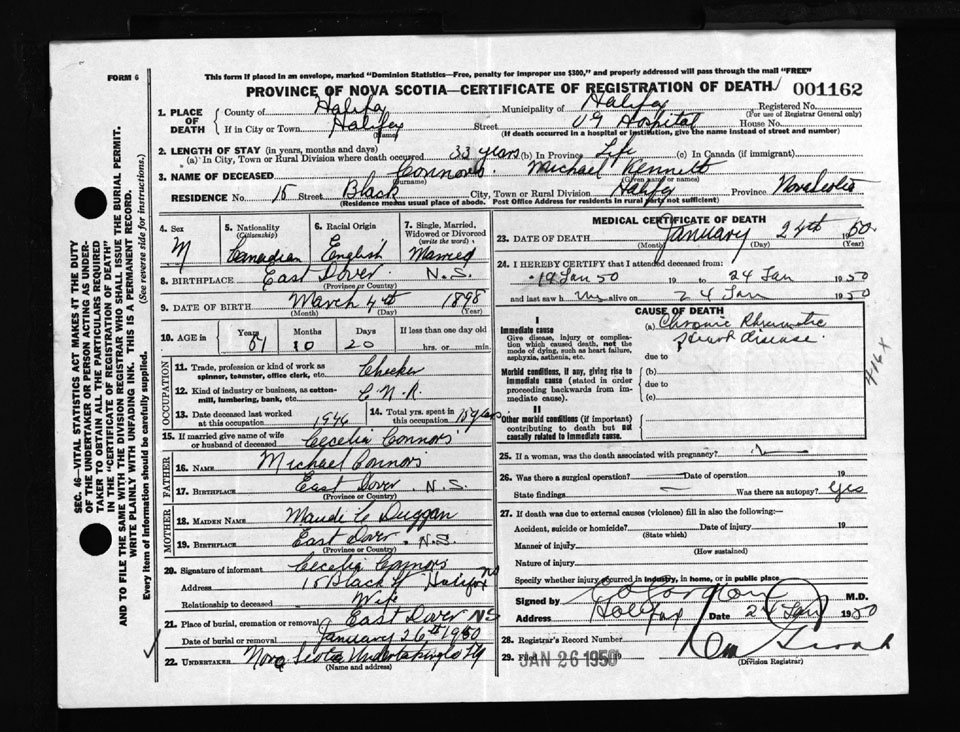 FORM 6
This form if placed in an envelope, marked "Dominion Statistics—Free, penalty for improper use $300," and properly addressed will pass through the mail "FREE"
PROVINCE OF NOVA SCOTIA—CERTIFICATE OF REGISTRATION OF DEATH 001162
SEC. 46—VITAL STATISTICS ACT MAKES IT THE DUTY
OF THE UNDERTAKER OR PERSON ACTING AS UNDER-
TAKER TO OBTAIN ALL THE PARTICULARS REQUIRED
IN THE "CERTIFICATE OF REGISTRATION OF DEATH"
AND TO FILE THE SAME WITH THE DIVISION REGISTRAR WHO SHALL ISSUE THE BURIAL PERMIT.
WRITE PLAINLY WITH UNFADING INK. THIS IS A PERMANENT RECORD.
Every item of Information should be carefully supplied. (See reverse side for instructions.)
1. PLACE OF DEATH County of Halifax Municipality of Halifax Registered No.
(For use of Registrar General only)
If in City or Town Halifax Street VG Hospital House No.
(Name) (If death occurred in a hospital or institution, give the name instead of street and number)
2. LENGTH OF STAY (in years, months and days)
(a) In City, Town or Rural Division where death occurred 33 years (b) In Province Life (c) In Canada (if immigrant)
3. NAME OF DECEASED Connors. Michael Kenneth
(Surname) (Given name or names)
RESIDENCE No. 15 Street Black City, Town or Rural Division Halifax Province Nova Scotia
(Residence means usual place of abode. Post Office Address for residents in rural parts not sufficient)
4. Sex M
5. Nationality (Citizenship) Canadian
6. Racial Origin English
7. Single, Married, Widowed or Divorced (write the word) Married
8. BIRTHPLACE East Dover. N.S.
(Province or Country)
9. DATE OF BIRTH March 4th 1898
(Month) (Day) (Year)
10. AGE in Years 51 Months 10 Days 20 If less than one day old
hrs. or min.
OCCUPATION
11. Trade, profession or kind of work as spinner, teamster, office clerk, etc. Checker
12. Kind of industry or business, as cotton-mill, lumbering, bank, etc. C.N.R.
13. Date deceased last worked at this occupation 1946
14. Total yrs. spent in this occupation 15 years
15. If married give name of wife or husband of deceased Cecelia Connors
FATHER
16. NAME Michael Connors
17. BIRTHPLACE East Dover. N.S.
(Province or Country)
MOTHER
18. MAIDEN NAME Maude Duggan
19. BIRTHPLACE East Dover. N.S.
(Province or Country)
20. Signature of informant Cecelia Connors
Address 15 Black St Halifax NS
Relationship to deceased Wife
21. Place of burial, cremation or removal East Dover NS
Date of burial or removal January 26th 1950
22. UNDERTAKER Nova Scotia Undertaking Co
(Name and address)
MEDICAL CERTIFICATE OF DEATH
23. DATE OF DEATH January 24th 1950
(Month) (Day) (Year)
24. I HEREBY CERTIFY that I attended deceased from:
19 Jan 50 19 to 24 Jan 1950
and last saw h im alive on 24 Jan 1950
CAUSE OF DEATH
I
Immediate cause
Give disease, injury or complication which caused death, not the mode of dying, such as heart failure, asphyxia, asthenia, etc.
(a) Chronic Rheumatic
Heart disease.
due to
Morbid conditions, if any, giving rise to immediate cause (stated in order proceeding backwards from immediate cause).
(b)
due to
(c)
II
Other morbid conditions (if important) contributing to death but not causally related to immediate cause.
416 X
25. If a woman, was the death associated with pregnancy?
26. Was there a surgical operation? Date of operation 19
State findings Was there an autopsy? Yes
27. If death was due to external causes (violence) fill in also the following:—
Accident, suicide or homicide? Date of injury 19
(State which)
Manner of injury
(How sustained)
Nature of injury
Specify whether injury occurred in industry, in home, or in public place
Signed by Gordon M.D.
Address Halifax Date 24 Jan 1950
28. Registrar's Record Number
29. Filed JAN 26 1950 19
(Division Registrar)